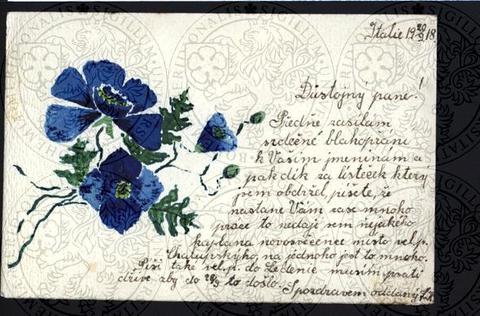 Italie 19 20/9 18
Důstojný pane!
Předně zasílám
srdečné blahopřání
k Vašim jmeninám a
pak dík za lísteček který
jsem obdržel, píšete, že
nastane Vám zase mnoho
práce to nedají sem nějakého
kaplana novosvěcence místo vel. p.
Chalupskýho, na jednoho jest to mnoho.
Píši také vel. p. do Ledenic musím psáti
dříve aby do 28/9 to došlo. S pozdravem oddaný